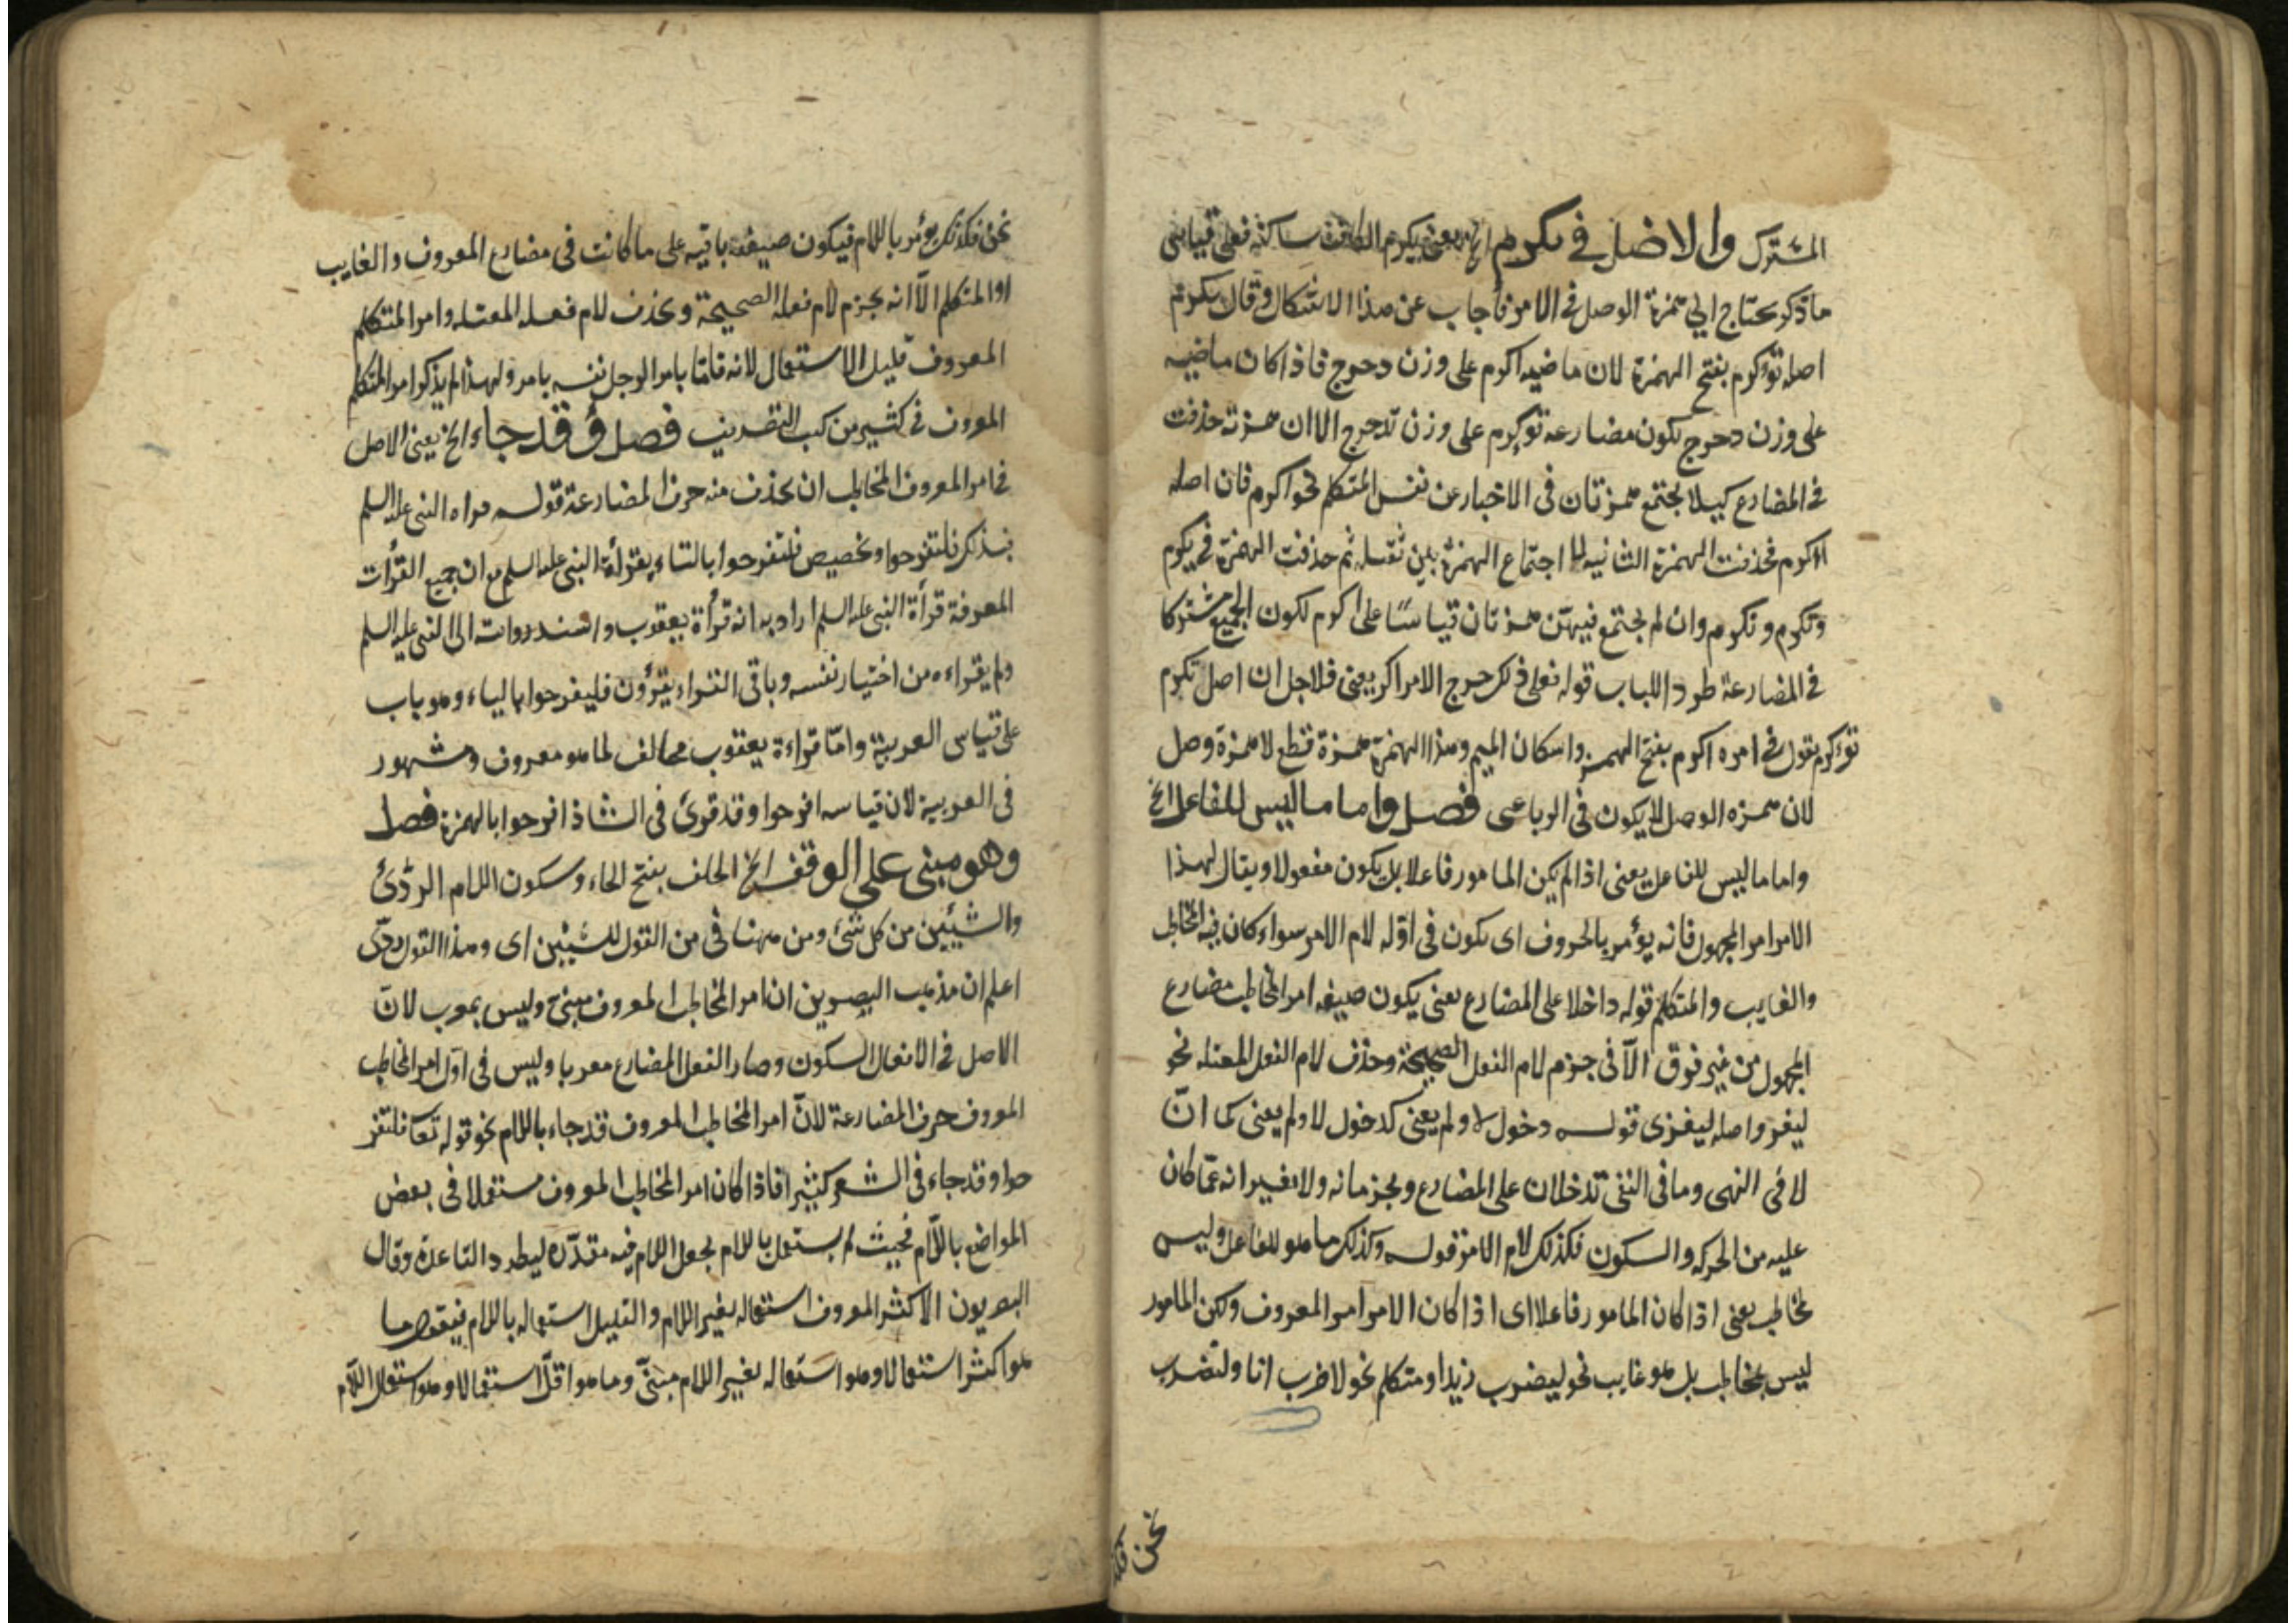 المشترك والاصل في تكرم الخ يعنى تكرم الكاف ساكنة فعلى قياس
ما ذكر يحتاج الى همزة الوصل فى الامر فأجاب عن هذا الاشكال وقال تكرم
اصله تؤكرم بفتح الهمزة لان ماضيه اكرم على وزن دحرج فاذا كان ماضيه
على وزن دحرج يكون مضارعه توكرم على وزن تدحرج الا ان همزته حذفت
فى المضارع كيلا يجتمع همزتان فى الاخبار عن نفس المتكلم نحو اكرم فان اصله
ااكرم فحذفت الهمزة الثانيه لما اجتماع الهمزتين ثقيله ثم حذفت الهمزة فى يكرم
وتكرم ونكرم وان لم يجتمع فيهن همزتان قياسًا على اكرم لكون الجميع مشتركا
فى المضارعة طرد اللباب قوله فعلى ذلك خرج الامر اكر يعنى فلاجل ان اصل تكرم
تؤكرم نقول فى امره اكرم بفتح الهمزة واسكان الميم وهذا الهمزة همزة قطع لا همزة وصل
لان همزه الوصل لا يكون فى الرباعى فصل واما ما ليس للفاعل الخ
واما ما ليس للفاعل يعنى اذا لم يكن المامور فاعلا بل يكون مفعولا ويقال لهذا
الامر امر المجهول فانه يؤمر بالحروف اى يكون فى اوّله لام الامر سواء كان فيه المخاطب
والغايب والمتكلم قوله داخلا على المضارع يعنى يكون صيغه امر المخاطب مضارع
المجهول من غير فرق الّا فى جزم لام الفعل الصحيحة وحذف لام الفعل المعتله نحو
ليغز واصله ليغزى قوله دخول لا ولم يعنى كدخول لا ولم يعنى كما انّ
لا فى النهى وما فى النفى تدخلان على المضارع ويجزمانه ولا تغييرانه عمّا كان
عليه من الحركه والسكون فكذلك لام الامر قوله وكذلك ما هو للفاعل وليس
بمخاطب يعنى اذا كان المامور فاعلا اى اذا كان الامر امر المعروف ولكن المامور
ليس بمخاطب بل هو غايب نحو ليضرب زيد او متكلم نحو لاضرب انا ولنضرب
نحن فكذ
نحن فكذلك يؤمر باللام فيكون صيغته باقيه على ما كانت فى مضارع المعروف والغايب
او المتكلم الاّ انه يجزم لام فعله الصحيحة ويحذف لام فعله المعتله وامر المتكلم
المعروف قليل الاستعمال لانه قلّما يامر الرجل نفسه بامر ولهذا لم يذكر امر المتكلم
المعروف فى كثير من كتب التصريف فصل وقد جاء الخ يعنى الاصل
فى امر المعروف المخاطب ان يحذف منه حرف المضارعة قوله قراه النبى عليه السلم
فبذلك فلتفرحوا وتخصيص فلتفرحوا بالتاء بقرأة النبى عليه السلم مع ان جميع القرأت
المعرفة قرأة النبى عليه السلم اراد به انه قرأة يعقوب واسند روايته الى النبى عليه السلم
ولم يقراءه من اختيار نفسه وباقى القراء يقرؤن فليفرحوا بالياء وهو باب
على قياس العربية وامّا قراءة يعقوب مخالف لما هو معروف ومشهور
فى العربية لان قياسه افرحوا وقد قرئ فى الشاذ افرحوا بالهمزة فصل
وهو مبنى على الوقف الخ الخلف بفتح الخاء وسكون اللام الردّئ
والشيئين من كل شئ ومن ههنا فى من القول للشيئين اى وهذا القول ردّى
اعلم ان مذهب البصريين ان امر المخاطب المعروف مبنى وليس بمعرب لانّ
الاصل فى الافعال السكون وصار الفعل المضارع معربا وليس فى اوّل امر المخاطب
المعروف حرف المضارعة لانّ امر المخاطب المعروف قد جاء باللام نحو قوله تعا فلتفر
حوا وقد جاء فى الشعر كثيرا فاذا كان امر المخاطب المعروف مستعملا فى بعض
المواضع باللّام فحيث لم يستعمل باللام يجعل اللام فيه مقدّره ليطرد القاعدة وقال
البصريون الاكثر المعروف استعماله بغير اللام والقليل استعماله باللام فيقول ما
هو اكثر استعمالا وهو استعماله بغير اللام مبنىّ وما هو اقلّ استعمالا وهو استعمال اللّام